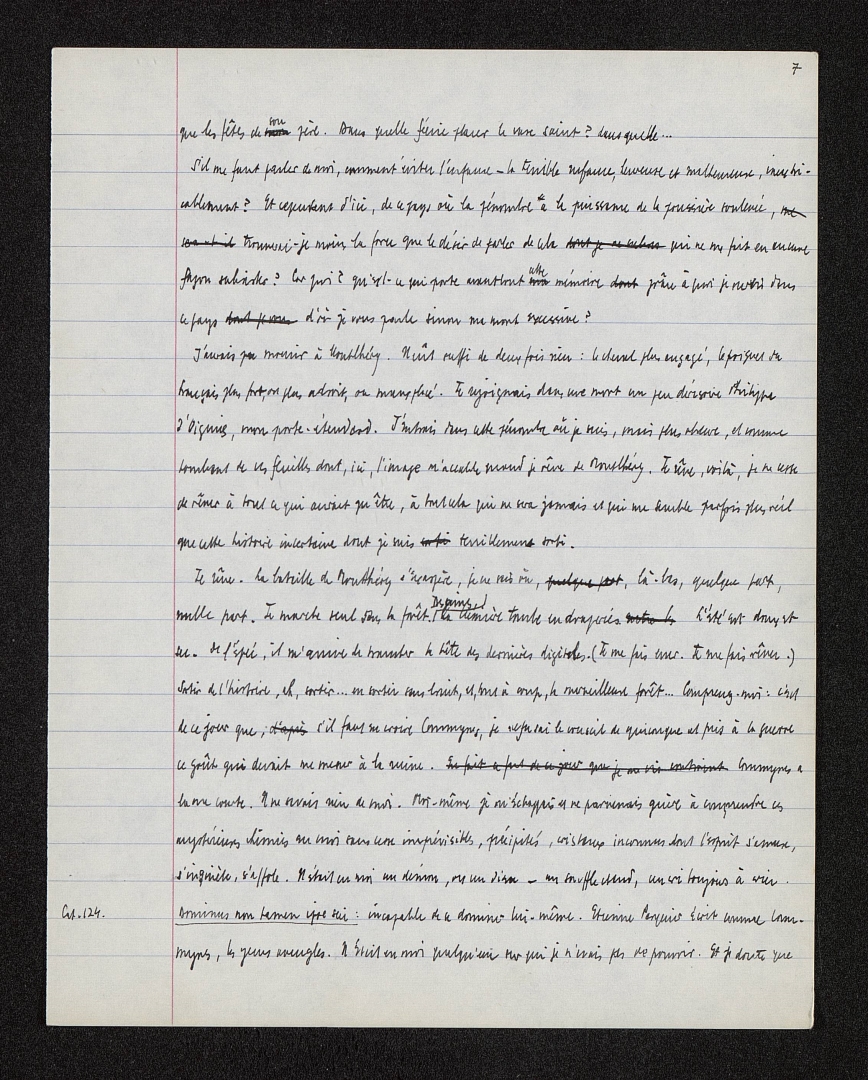 7
que les fêtes de son père. Dans quelle féerie placer le vase saint? dans quelle...
S'il me faut parler de moi, comment éviter l'enfance – la terrible enfance, heureuse et malheureuse, inextri-
cablement? Et cependant d'ici, de ce pays où la pénombre a la puissance de la poussière soulevée,
trouverai-je moins la force que le désir de parler de cela qui ne me fait en aucune
façon subsister? Car quoi? qu'est-ce qui porte avant tout cette mémoire grâce à quoi je dans
ce pays d'où je vous parle sinon ma mort excessive?
J'aurais pu mourir à Montlhéry. Il eût suffi de deux fois rien : le cheval plus engagé, le poignet du
Français plus fort, ou plus adroit, ou mieux placé. Je rejoignais dans une mort un peu dérisoire Philippe
d'Oignies, mon porte-étendard. J'entrais dans cette pénombre où je suis, mais plus obscure, et comme
tombant de ces feuilles dont, ici, l'image m'accable quand je rêve de Montlhéry. Je rêve, voilà, je ne cesse
de rêver à tout ce qui aurait pu être, à tout cela qui ne sera jamais et qui me semble parfois plus réel
que cette histoire incertaine dont je suis terriblement sorti.
Je rêve. La bataille de Montlhéry s'exaspère, je ne sais où, là-bas, quelque part,
nulle part. Je marche seul dans la forêt. La lumière tombe en draperies L'été est doux et
sec. De l'épée, il m'arrive de trancher la tête des dernières digitales. (Je me fais errer. Je me fais rêver.)
Sortir de l'histoire, ah, sortir... en sortir sans bruit, et, tout à coup, la merveilleuse forêt... Comprenez-moi : c'est
de ce jour que, s'il faut en croire Commynes, je refusai le conseil de quiconque et pris à la guerre
ce goût qui devait me mener à la ruine. Commynes a
la vue courte. Il ne savait rien de moi. Moi-même je m'échappais et ne parvenais guère à comprendre ces
mystérieux chemins en moi sans cesse imprévisibles, précipités, inconnus dont l'esprit s'amuse,
s'inquiète, s'affole. Il était en moi un démon, ou un dieu – un souffle chaud, un cri toujours à crier.
Cat. 124.
Dominus non tamen ipse sui : incapable de se dominer lui-même. Etienne Pasquier écrit comme Com-
mynes, les yeux aveugles. Il était en moi quelqu'un sur qui je n'avais pas de pouvoir. Et je doute que